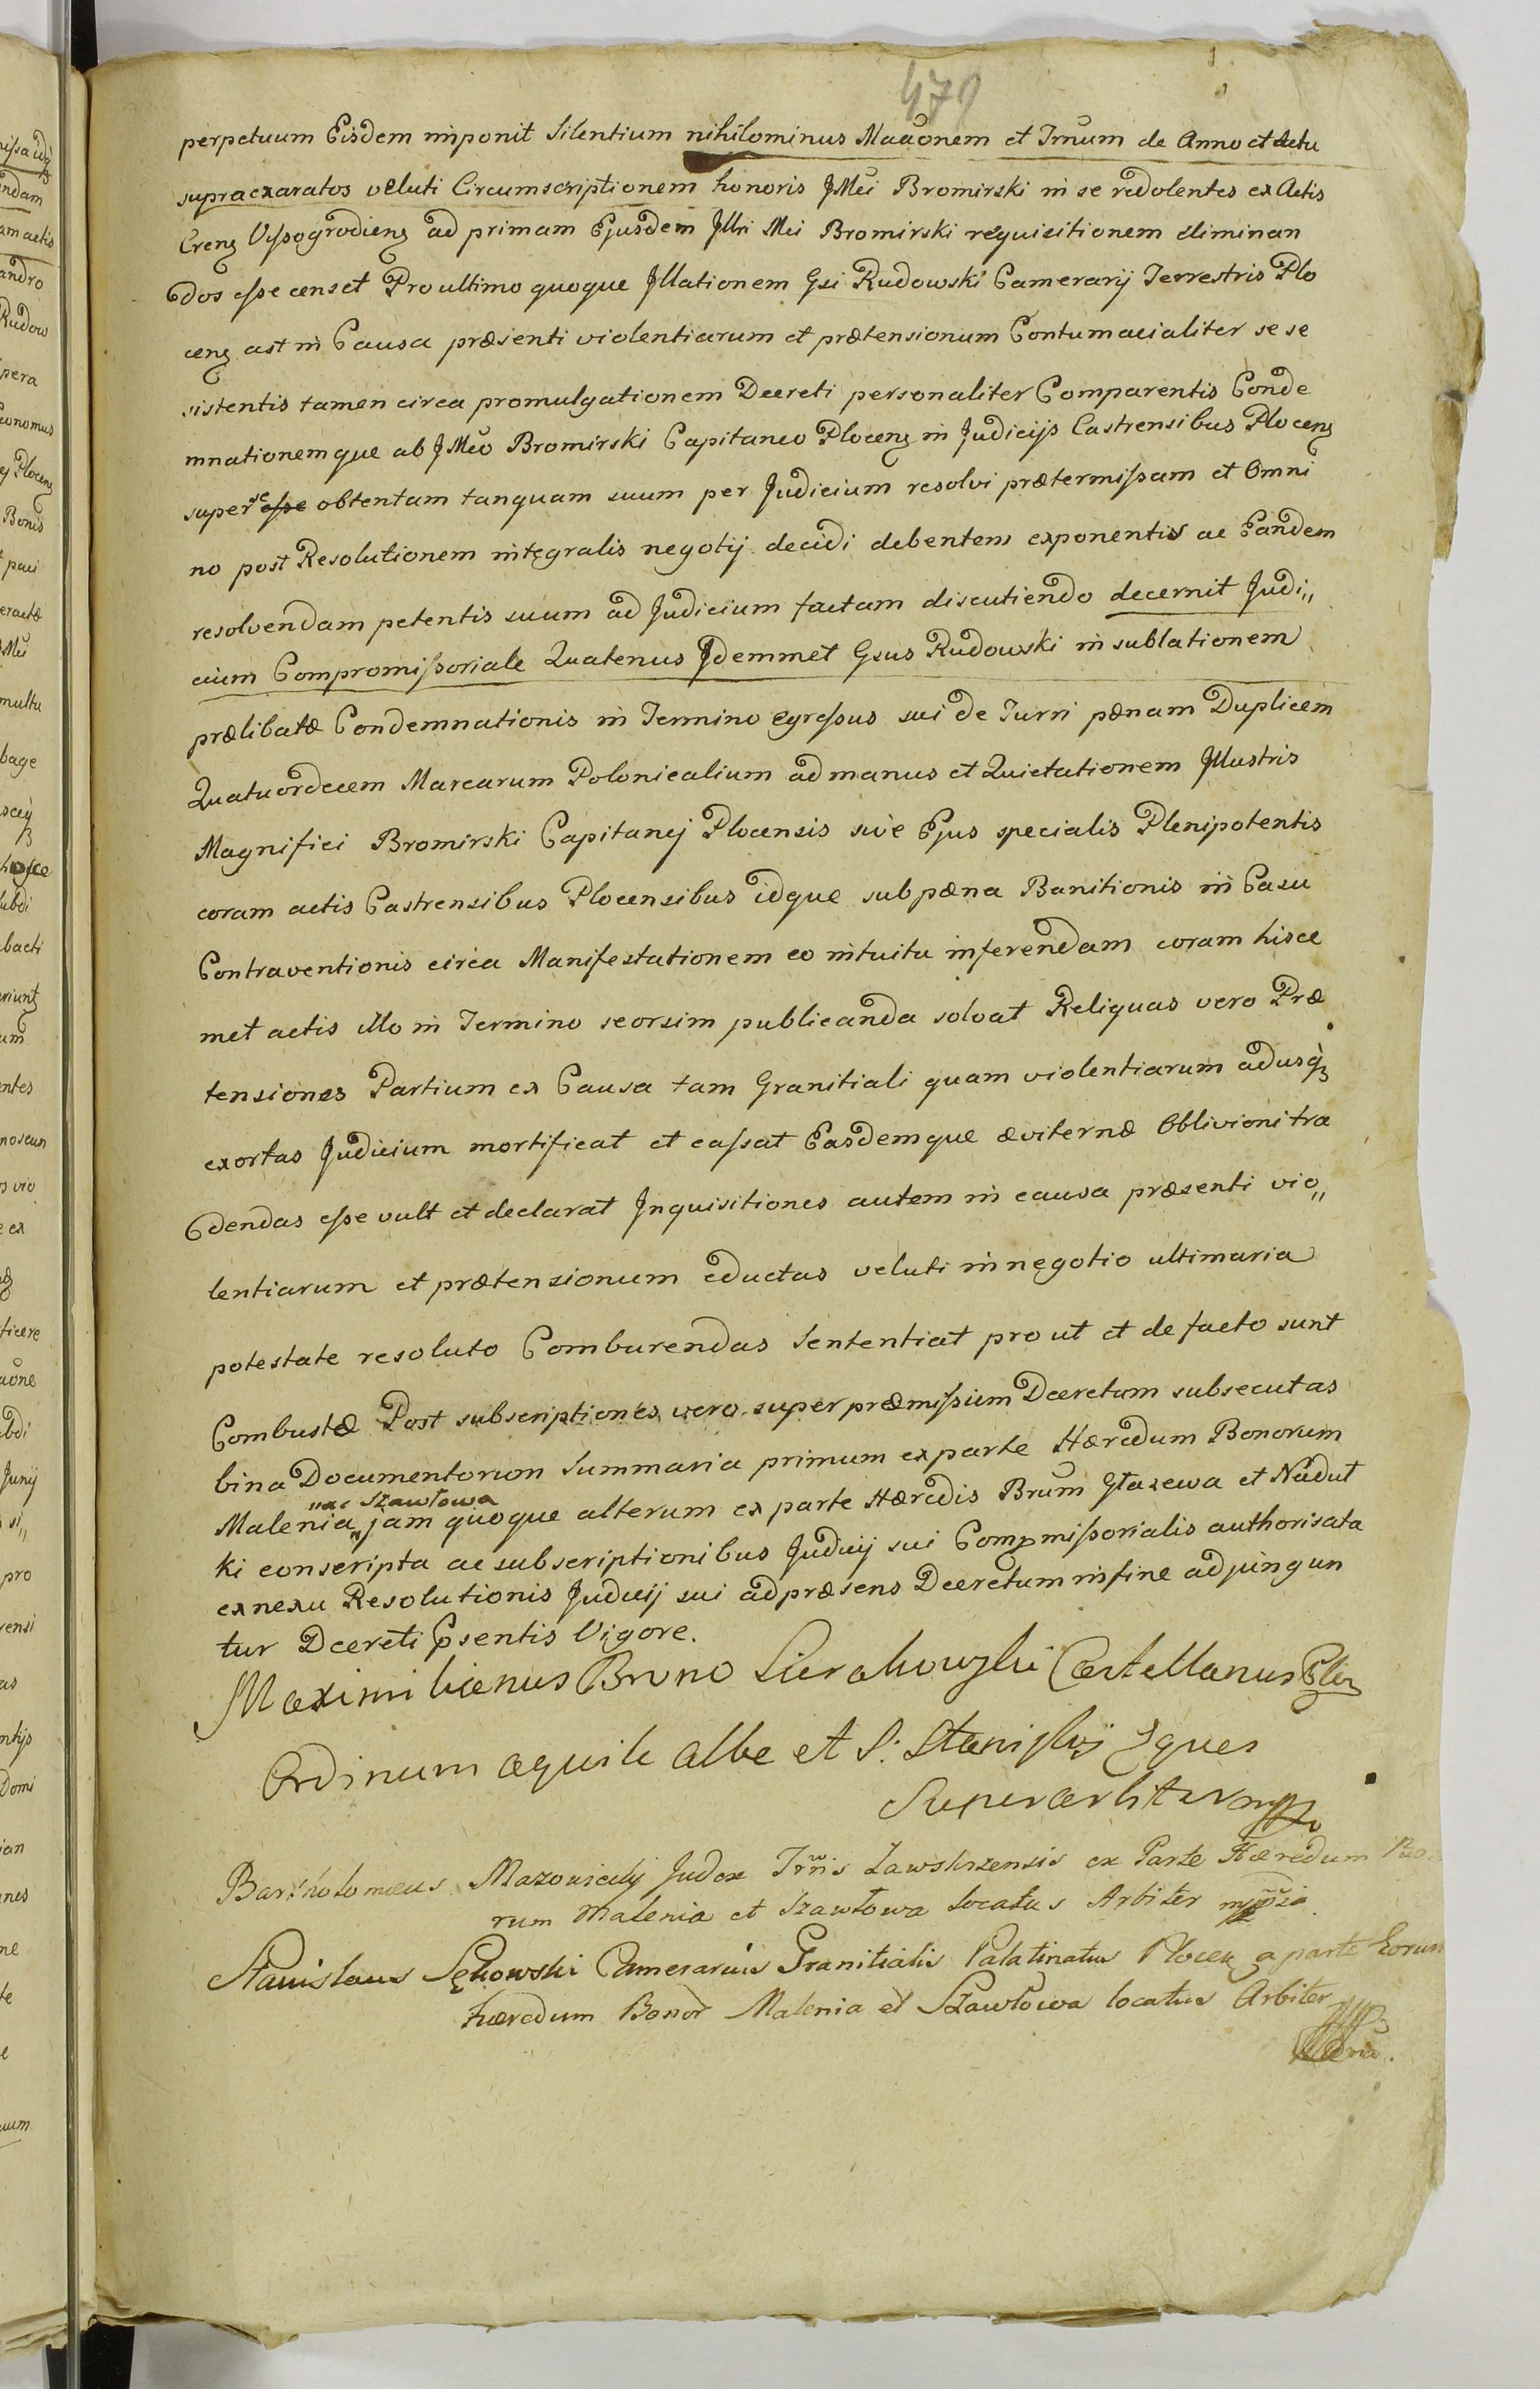 479
perpetuum Eisdem imponit Silentium nihilominus Maaonem et Trnum de Anno et actu
supraexaratos veluti Circumscriptionem honoris JMci Bromirski in se redolentes ex Actis
Creng Vyssogrodieng ad primam Ejusdem Jllri Mci Bromirski requisitionem eliminan
dos esse censet Pro ultimo quoque Jllationem Gsi Rudowski Camerarij Terrestris Plo
ceng ast in Causa præsenti violentiarum et prætensionum Contumacialiter se se
sistentis tamen circa promulgationem Decreti personaliter Comparentis Conde
mnationemque ab JMco Bromirski Capitaneo Ploceng in Judicijs Castrensibus Ploceng
super se obtentam tanquam suum per Judicium resolvi prætermissam et Omni
no post Resolutionem integralis negotij decidi debentem exponentis ac Eandem
resolvendam petentis suum ad Judicium factam discutiendo decernit Judi„
cium Compromissoriale Quatenus Jdemmet Gsus Rudowski in sublationem
prælibatæ Condemnationis in Termino egressus sui de Turri pænam Duplicem
Quatuordecem Marcarum Polonicalium ad manus et Quietationem Jllustris
Magnifici Bromirski Capitanej Plocensis sive Ejus specialis Plenipotentis
coram actis Castrensibus Plocensibus idque sub pæna Banitionis in Casu
Contraventionis circa Manifestationem eo intuitu inferendam coram hisce
met actis illo in Termino seorsim publicanda solvat Reliquas vero Præ
tensiones Partium ex Causa tam Granitiali quam violentiarum adusq
exortas Judicium mortificat et cassat Easdemque æviternæ Oblivioni tra
dendas esse vult et declarat Jnquisitiones autem in causa præsenti vio„
lentiarum et prætensionum eductas veluti in negotio ultimaria
potestate resoluto Comburendas Sententiat prout et de facto sunt
Combustæ Post subscriptiones vero super præmissum Decretum subsecutas
bina Documentorum Summaria primum ex parte Hæredum Bonorum
nec Szawłowa
Malenia jam quoque alterum ex parte Hæredis Brum Głazewa et Nadut
ki conscripta ac subscriptionibus Judicij sui Compmissorialis authorisata
ex nexu Resolutionis Judicij sui ad præsens Decretum in fine adjungun
tur Decreti psentis Vigore.
Maximilianus Bruno Sierakowski Castellanus
Ordinum aquile albe et S: Stanislaj Eques
Superarbiter mpp
Bartholomæus Mazowiecky Judex Trrnis Zawskrzensis ex Parte Hæredum
rum Malenia et Szawłowa locatus Arbiter
Stanislaus Sękowski Camerarius Granitialis Palatinatus Ploceng a parte Eorum
hæredum Bonor Malenia et Szawłowa locatus Arbiter